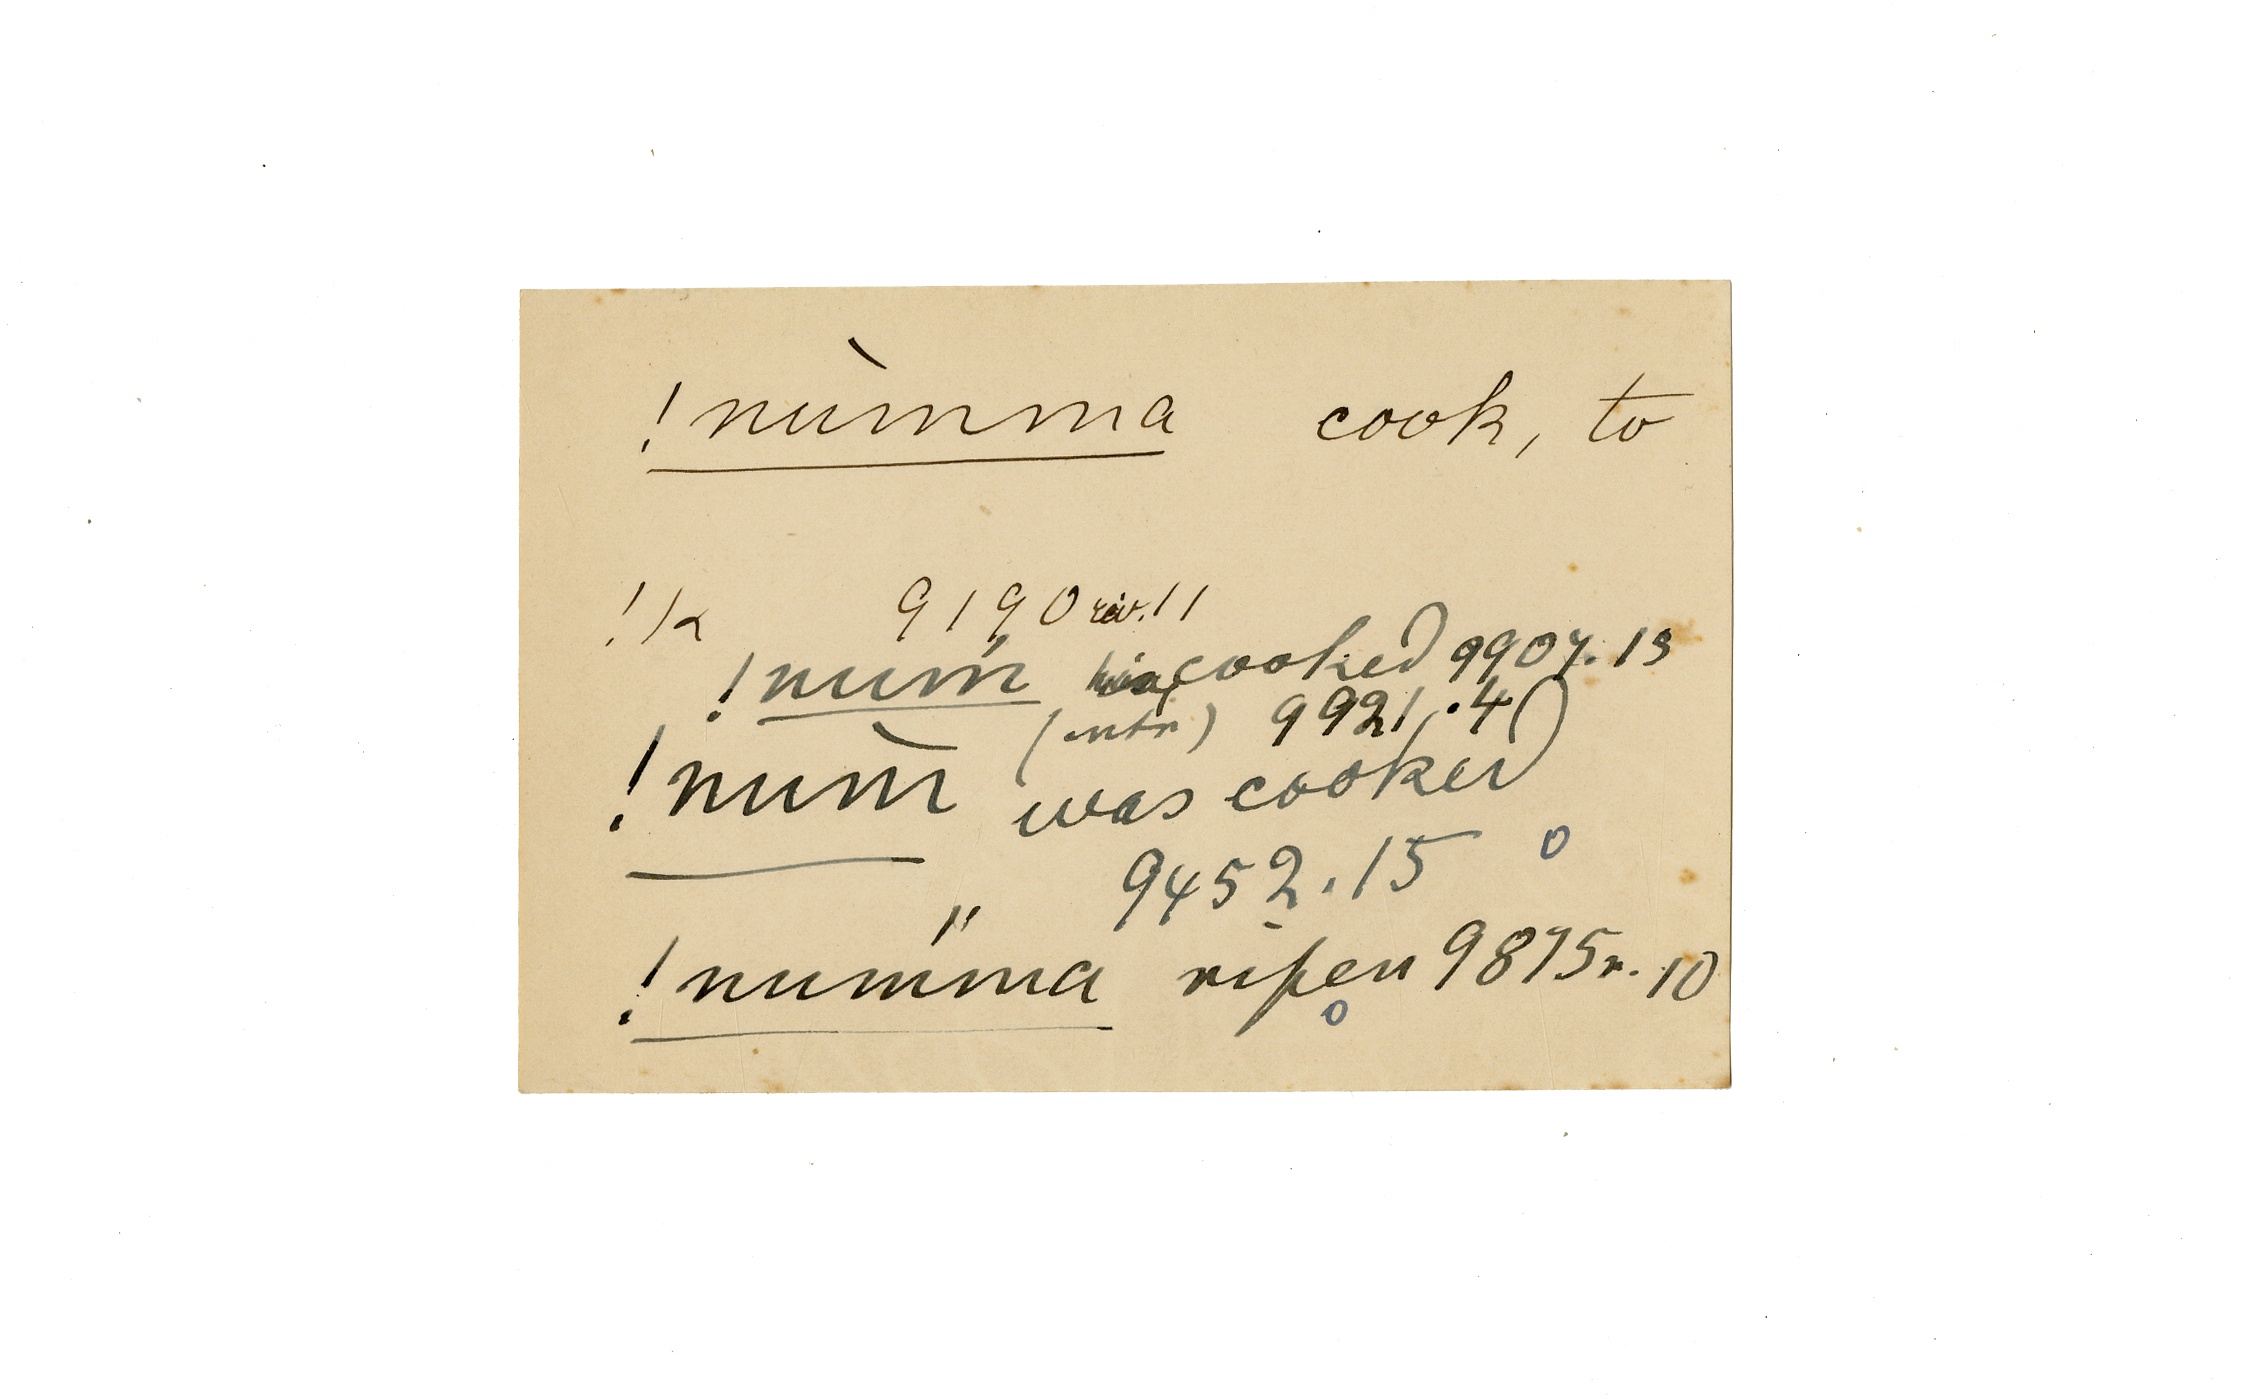 !nùmma cook, to
!k 9190 rev. 11
!num̀ cooked 9907. 13
(intr) 9921. 4
!nùm was cooked
9452. 15
!numma ripen 9875 r. 10